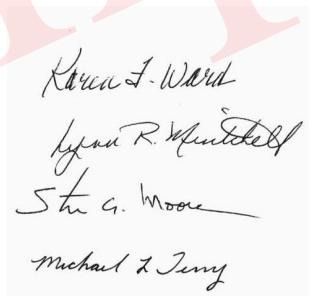 Karen F. Ward
Lynn R. Mintchell
Ste G. Moore
Michael L Terry